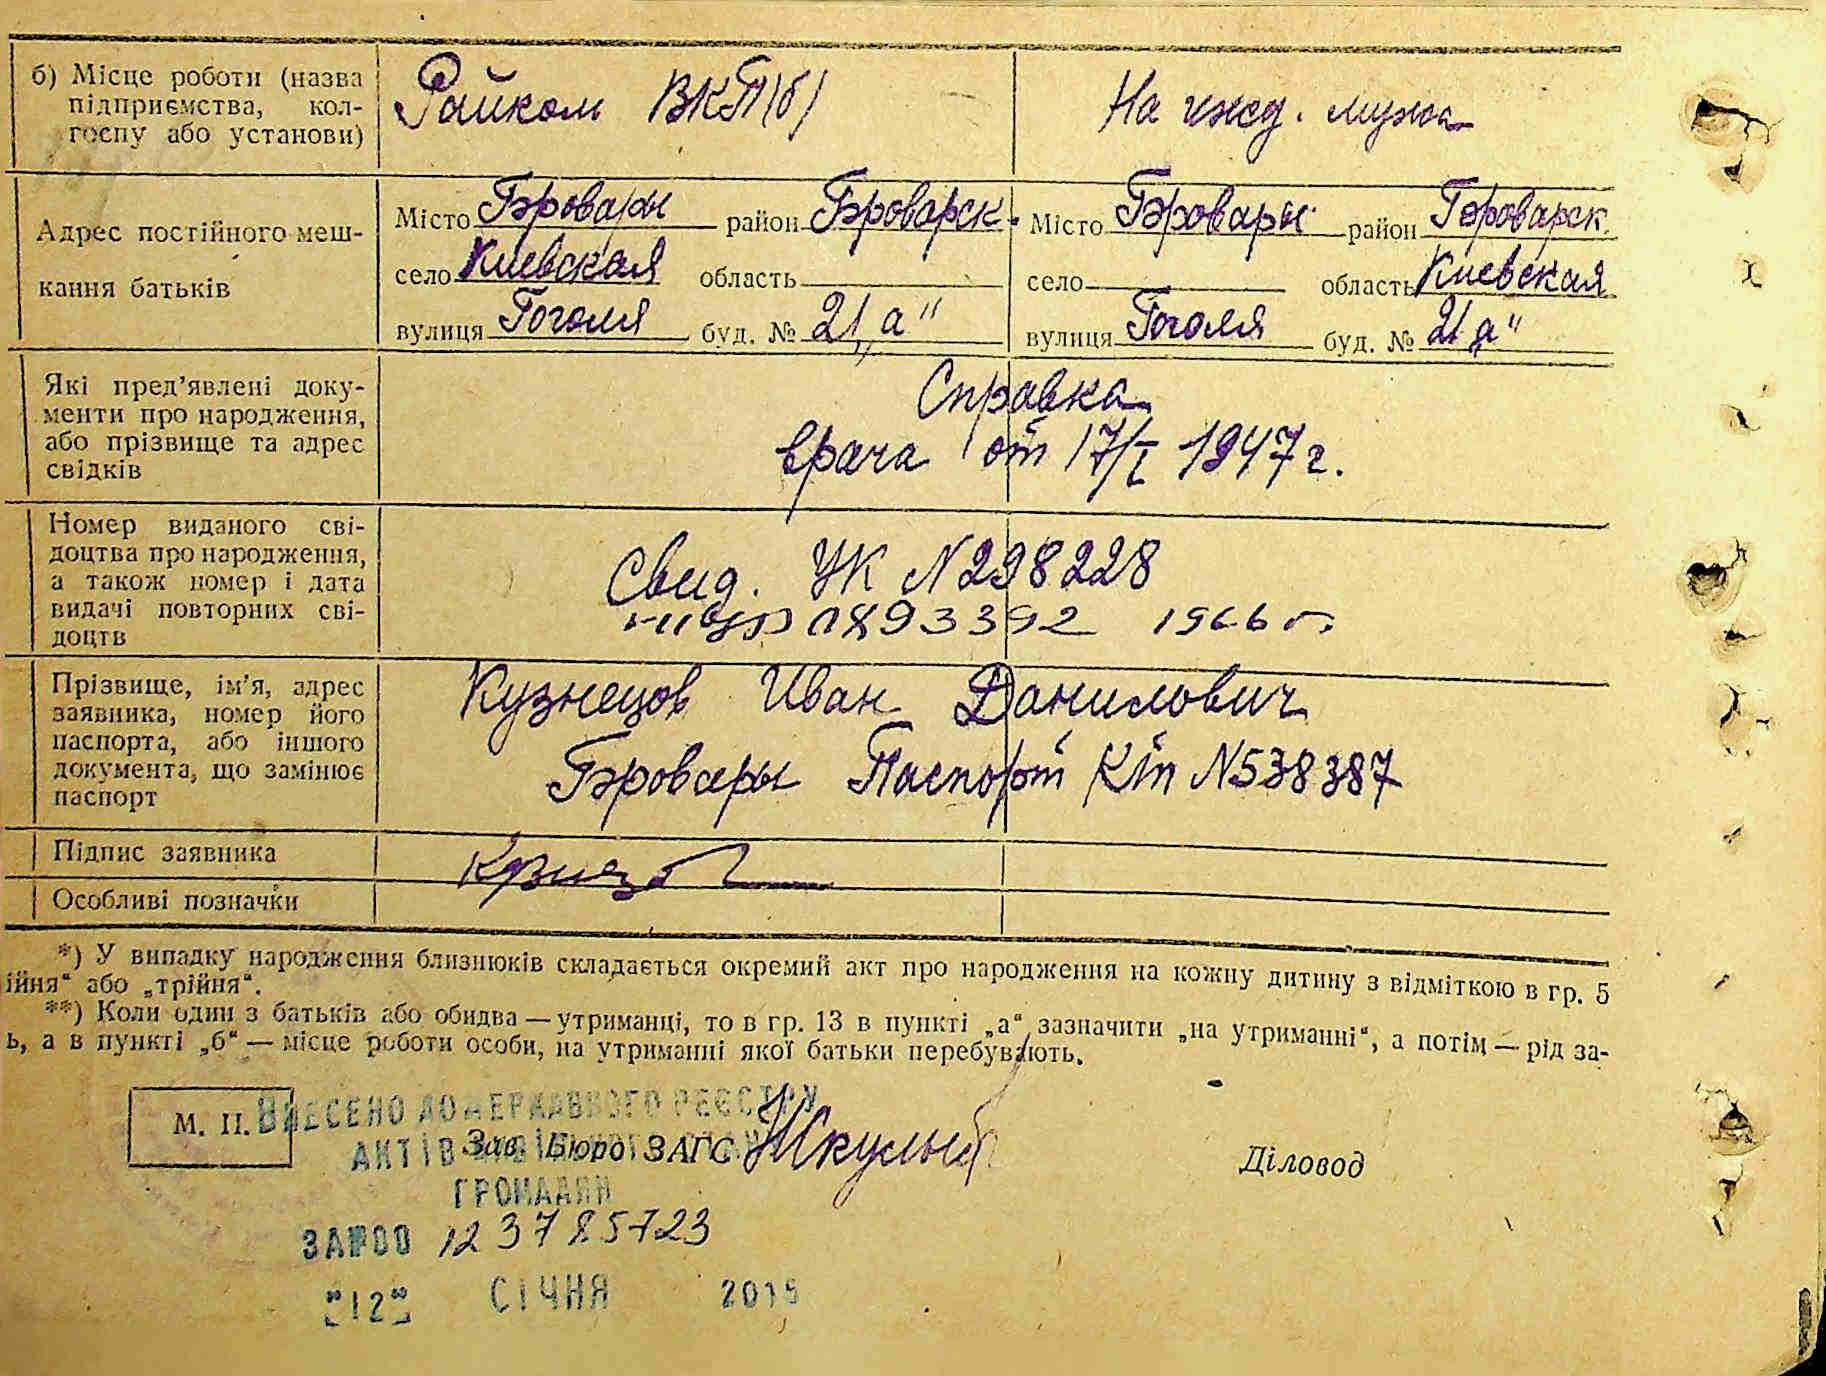 б) Місце роботи (назва
підприємства, кол-
госпу або установи)
Райком ВКП(б)
На ижд. мужа
Адрес постійного меш-
кання батьків
Місто Бровары район Броварск.
село Киевская область
вулиця Гоголя буд. № 21 „а"
Місто Бровары район Броварск.
село область Киевская
вулиця Гоголя буд. № 21 „а"
Які пред'явлені доку-
менти про народження,
або прізвище та адрес
свідків
Справка
врача от 17/I 1947 г.
Номер виданого сві-
доцтва про народження,
а також номер і дата
видачі повторних сві-
доцтв
Свид. УК N 298228
893392 1966 г.
Прізвище, ім'я, адрес
заявника, номер його
паспорта, або іншого
документа, що замінює
паспорт
Кузнецов Иван Данилович
Бровары Паспорт N 538387
Підпис заявника
Особливі позначки
*) У випадку народження близнюків складається окремий акт про народження на кожну дитину з відміткою в гр. 5
ійня" або „трійня".
**) Коли один з батьків або обидва — утриманці, то в гр. 13 в пункті „а" зазначити „на утриманні", а потім — рід за-
ь, а в пункті „б" — місце роботи особи, на утриманні якої батьки перебувають.
М. П.
ВНЕСЕНО ДО ДЕРЖАВНОГО РЕЄСТРУ
АКТІВ ЦИВІЛЬНОГО СТАНУ
ГРОМАДЯН
Зав. Бюро ЗАГС
Діловод
ЗА №00 123785723
"12" СІЧНЯ 2015